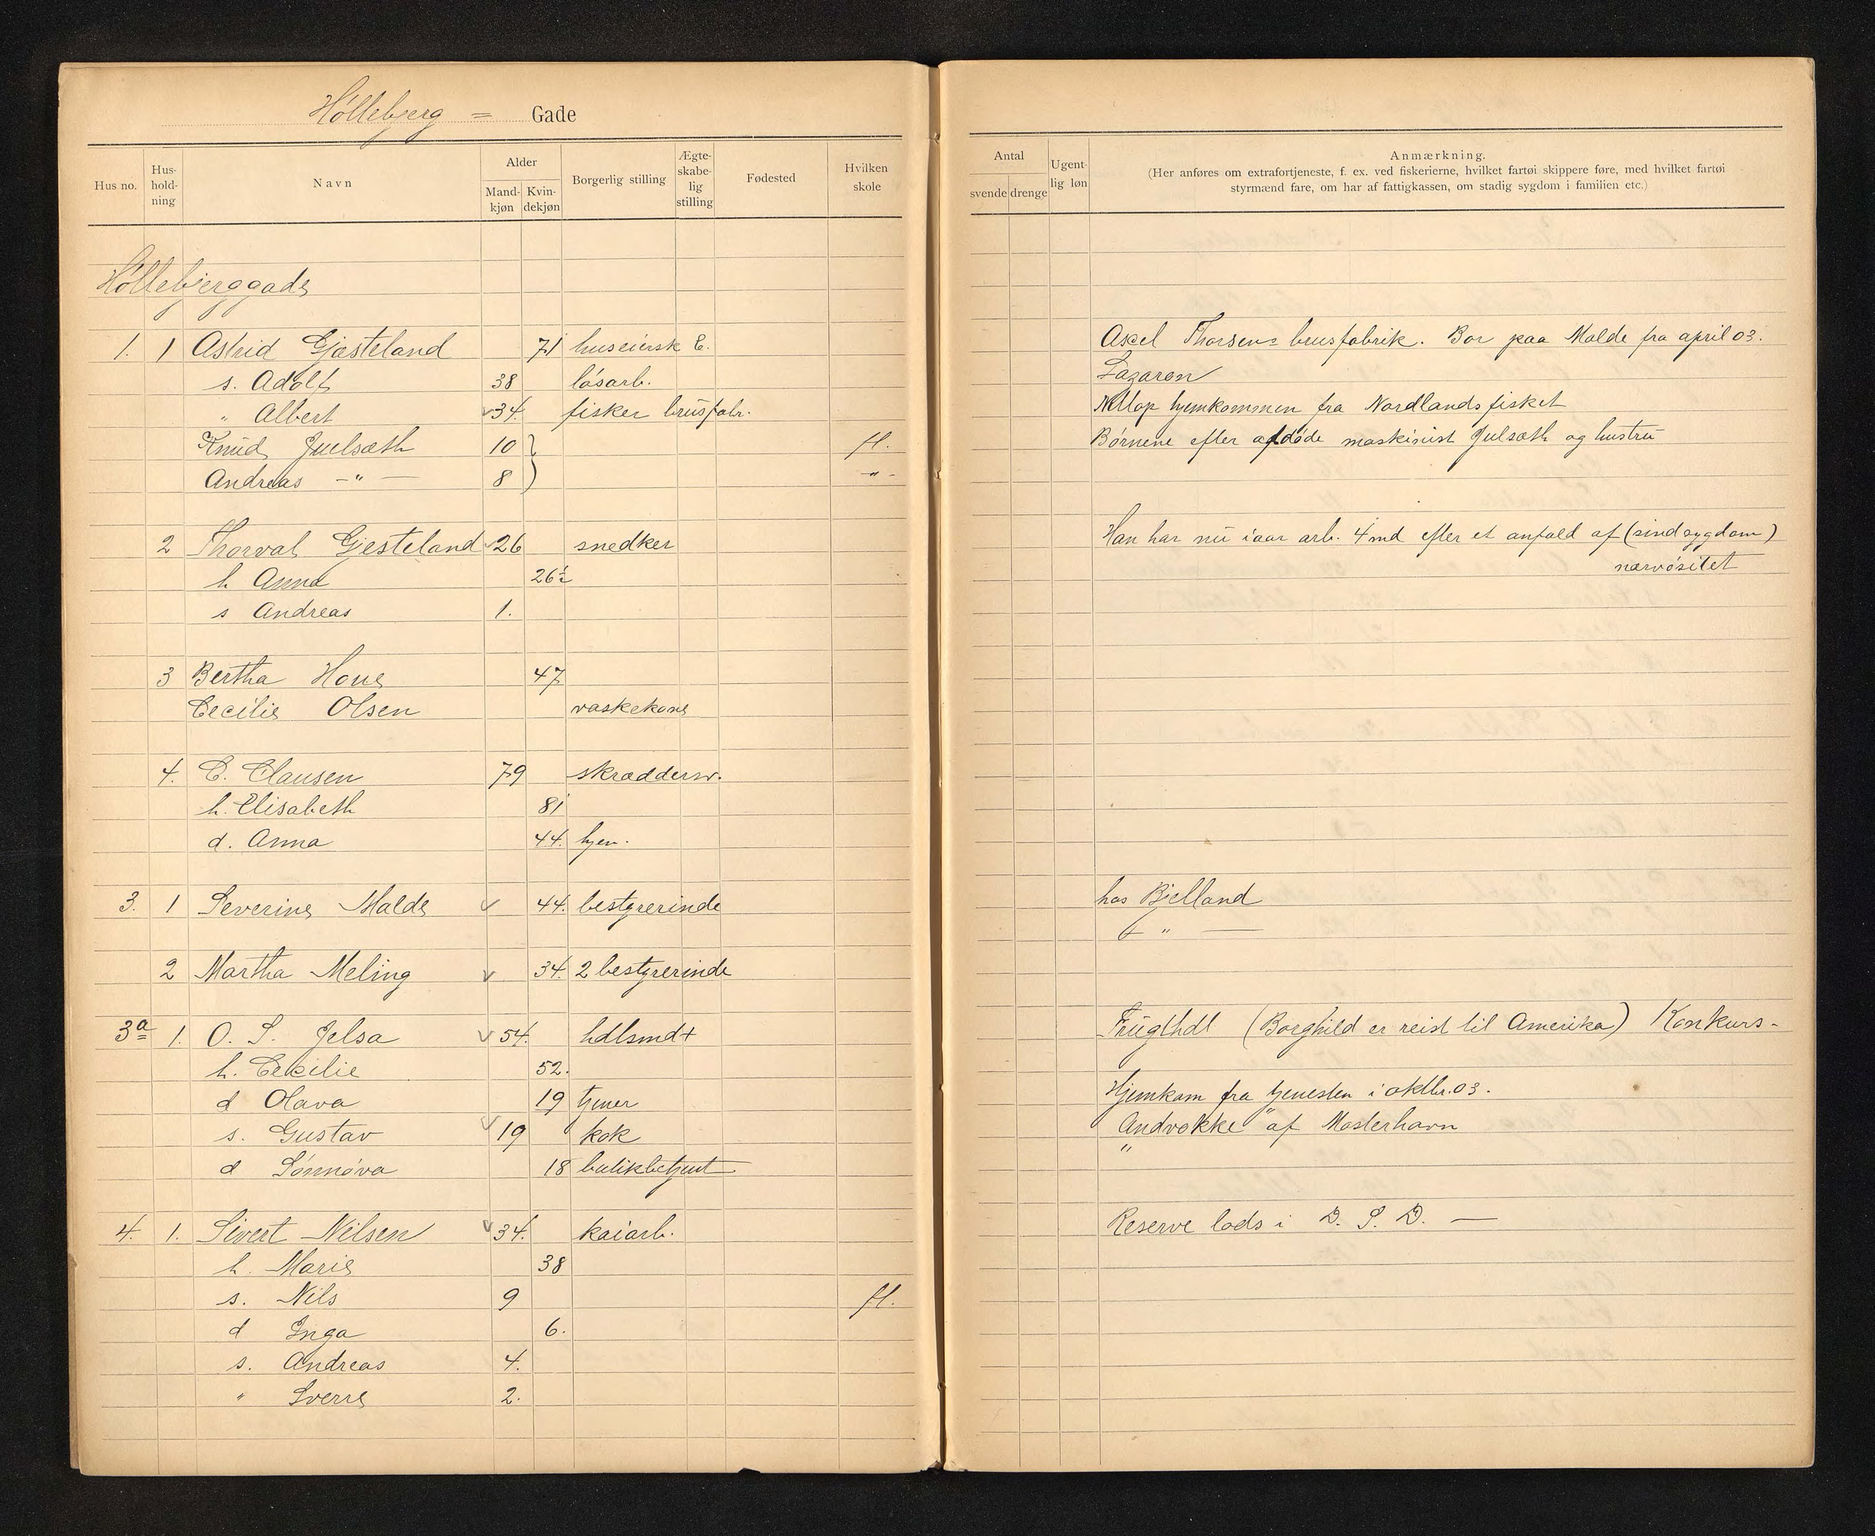 Høllebjerg = Gade
Hus no. Hus-hold-ning Navn Alder Mand-kjøn Kvin-dekjøn Borgerlig stilling Ægte-skabe-lig stilling Fødested Hvilken skole
Antal svende drenge Ugent-lig løn Anmærkning.
(Her anføres om extrafortjeneste, f. ex. ved fiskerierne, hvilket fartøi skippere føre, med hvilket fartøi
styrmænd fare, om har af fattigkassen, om stadig sygdom i familien etc.)
Høllebjerggade
1. 1 Astrid Gjæsteland 71 huseiersk E. Axel Thorsen= brusfabrik. Bor paa Malde fra april 03.
s. Adolf 38 løsarb. Lazaron
" Albert v 34. fisker brusfabr. Netlop hjemkommen fra Nordlandsfisket
Knud Juelsæth 10 } fl. Børnene efter afdøde maskinist Julsæth og hustru
Andreas -"- 8 } -"-
2 Thorval Gjesteland v 26 snedker Han har nu iaar arb. 4 md efter et anfald af (sindsygdom)
nærvøsitet
h Anna 26½
s Andreas 1.
3 Bertha Hove 47
Cecilie Olsen vaskekone
4. C. Clausen 79 skræddersv.
h. Elisabeth 81
d. Anna 44. hjem.
3. 1 Severine Malde v 44. bestyrerinde hos Bjelland
" —
2 Martha Meling v 34. 2 bestyrerinde
3a 1. O. S. Jelsa v 54. hdlsmd + Frugthdl (Borghild er reist til Amerika) Konkurs -
h. Cecilie 52.
d Olava 19 tjener Hjemkom fra tjenesten i oktbr. 03.
s. Gustav v 19 kok "Andvokke" af Mosterhavn
d Sønnøva 18 butikbetjent "
4. 1. Sivert Nilsen v 34. kaiarb. Reserve lods i D. S. D. —
h. Marie 38
s. Nils 9 fl.
d Inga 6.
s. Andreas 4.
" Sverre 2.